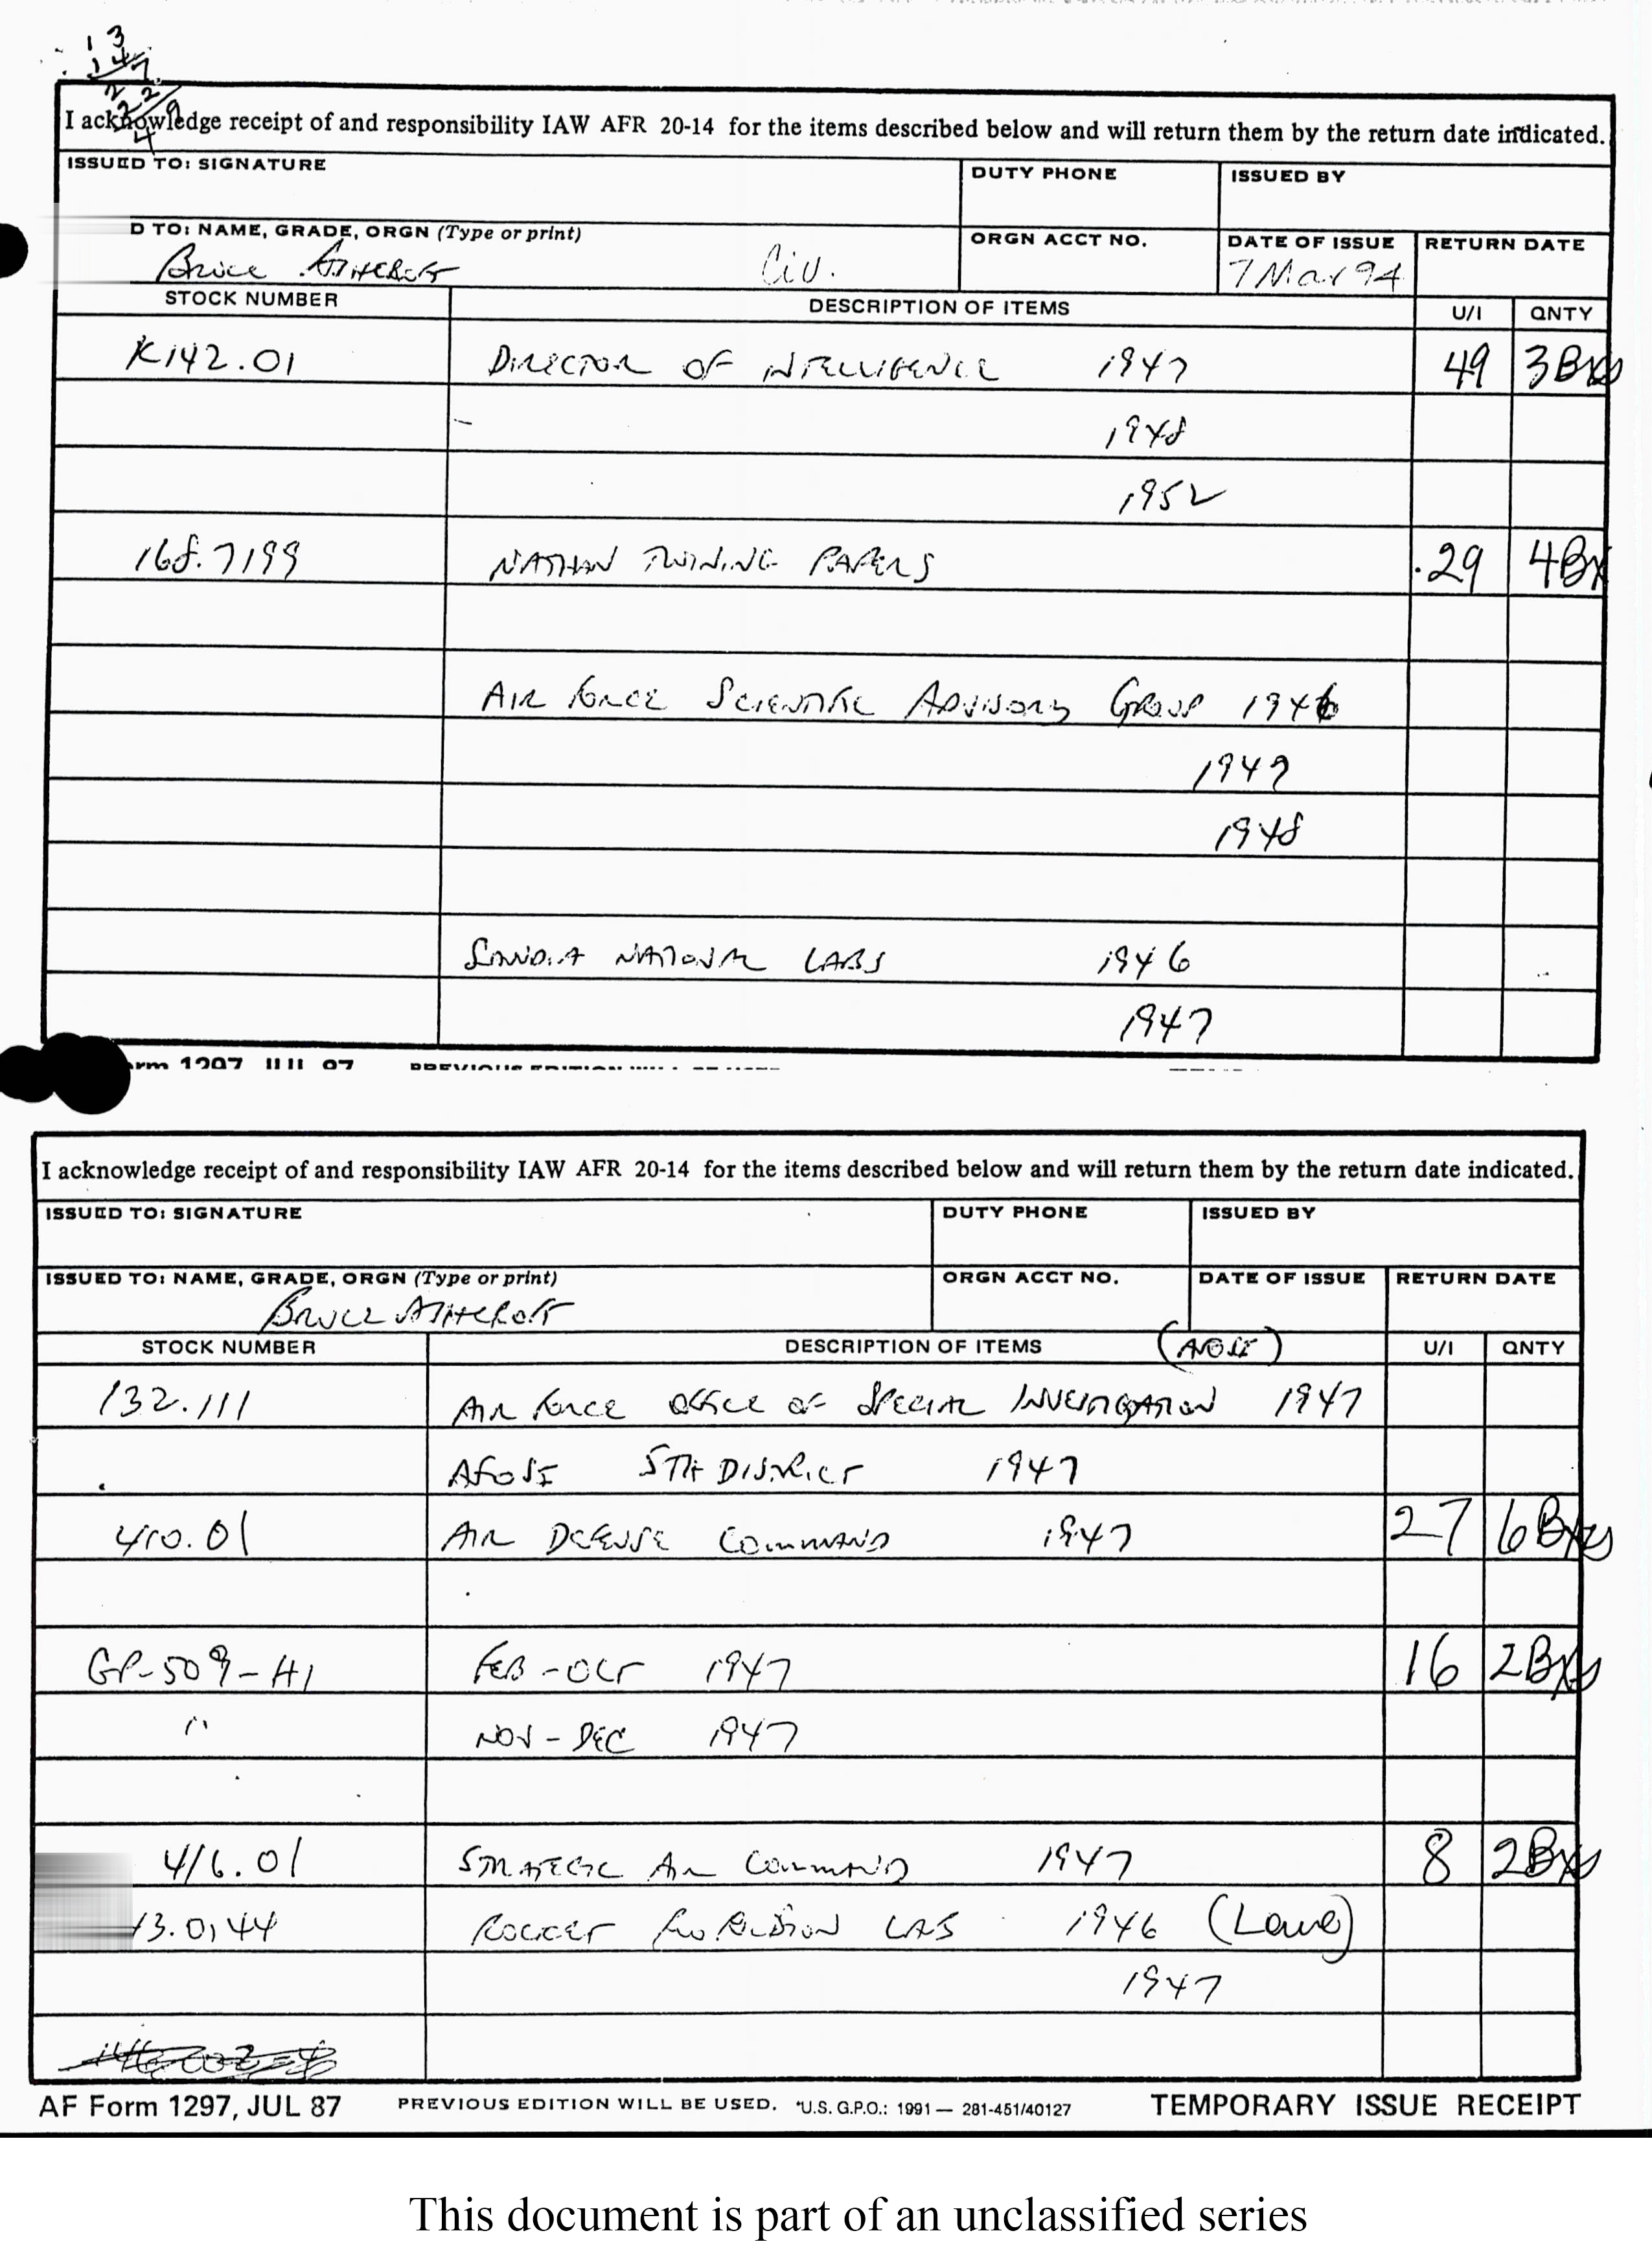 1 3
1 4 7
2 2 9
I acknowledge receipt of and responsibility IAW AFR 20-14 for the items described below and will return them by the return date indicated.
ISSUED TO: SIGNATURE DUTY PHONE ISSUED BY
D TO: NAME, GRADE, ORGN (Type or print) ORGN ACCT NO. DATE OF ISSUE RETURN DATE
Bruce Ashcroft Civ. 7 Mar 94
STOCK NUMBER DESCRIPTION OF ITEMS U/I QNTY
K142.01 DIRECTOR OF INTELLIGENCE 1947 49 3 Bxs
1948
1952
168.7199 NATHAN TWINING PAPERS .29 4 Bx
AIR FORCE SCIENTIFIC ADVISORY GROUP 1946
1947
1948
SANDIA NATIONAL LABS 1946
1947
rm 1297 JUL 87
I acknowledge receipt of and responsibility IAW AFR 20-14 for the items described below and will return them by the return date indicated.
ISSUED TO: SIGNATURE DUTY PHONE ISSUED BY
ISSUED TO: NAME, GRADE, ORGN (Type or print) ORGN ACCT NO. DATE OF ISSUE RETURN DATE
BRUCE ASHCROFT
STOCK NUMBER DESCRIPTION OF ITEMS (AFOSI) U/I QNTY
132.111 AIR FORCE OFFICE OF SPECIAL INVESTIGATION 1947
AFOSI 5TH DISTRICT 1947
410.01 AIR DEFENSE COMMAND 1947 27 6 Bxs
GP-509-HI FEB-OCT 1947 16 2 Bxs
" NOV-DEC 1947
416.01 STRATEGIC AIR COMMAND 1947 8 2 Bxs
13.0144 ROCKET PROPULSION LAB 1946 (Lowe)
1947
AF Form 1297, JUL 87 PREVIOUS EDITION WILL BE USED. *U.S. G.P.O.: 1991 — 281-451/40127 TEMPORARY ISSUE RECEIPT
This document is part of an unclassified series